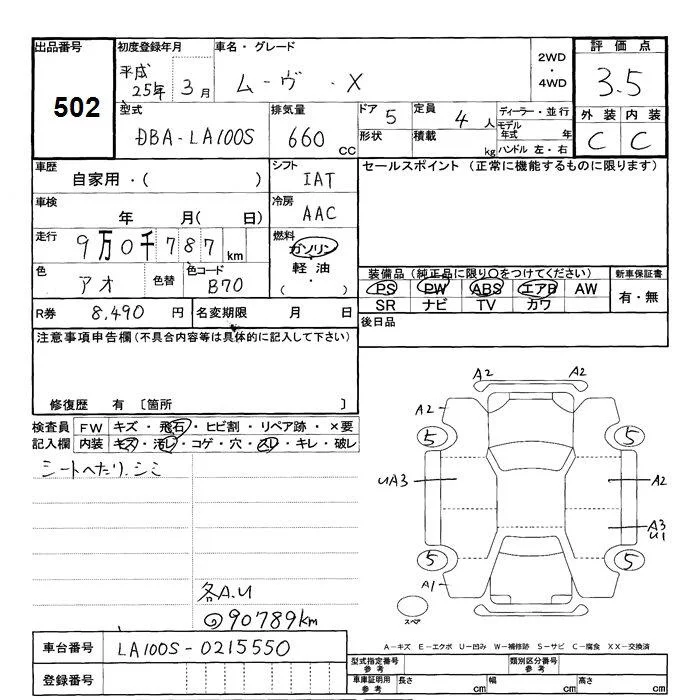 出品番号 初度登録年月 車名・グレード 2WD・4WD 評価点
502 平成25年 3月 ムーヴ・X 3.5
型式 排気量 ドア 5 定員 4人 ディーラー・並行 外装 内装
DBA-LA100S 660cc 形状 積載 kg モデル年式 年 C C
ハンドル 左・右
車歴 シフト セールスポイント (正常に機能するものに限ります)
自家用・( ) IAT
車検 冷房
年 月( 日) AAC
走行 9万0千787km 燃料
ガソリン
色 アオ 色替 色コード B70 軽油
( ・ )
装備品 (純正品に限り○をつけてください) 新車保証書
PS PW ABS エアB AW 有・無
SR ナビ TV カワ
R券 8,490円 名変期限 月 日 後日品
注意事項申告欄 (不具合内容等は具体的に記入して下さい)
修復歴 有 〔箇所 〕
検査員記入欄 FW キズ・飛石・ヒビ割・リペア跡・×要
内装 キズ・汚レ・コゲ・穴・スレ・キレ・破レ
シートへたり、シミ
各A.U
90789km
A2 A2
A2
5 5
UA3 A2
A3
U1
5 5
A1
スペア
A-キズ E-エクボ U-凹み W-補修跡 S-サビ C-腐食 XX-交換済
車台番号 LA100S-0215550
登録番号
型式指定番号 参考 類別区分番号 参考
車庫証明用 参考 長さ cm 幅 cm 高さ cm